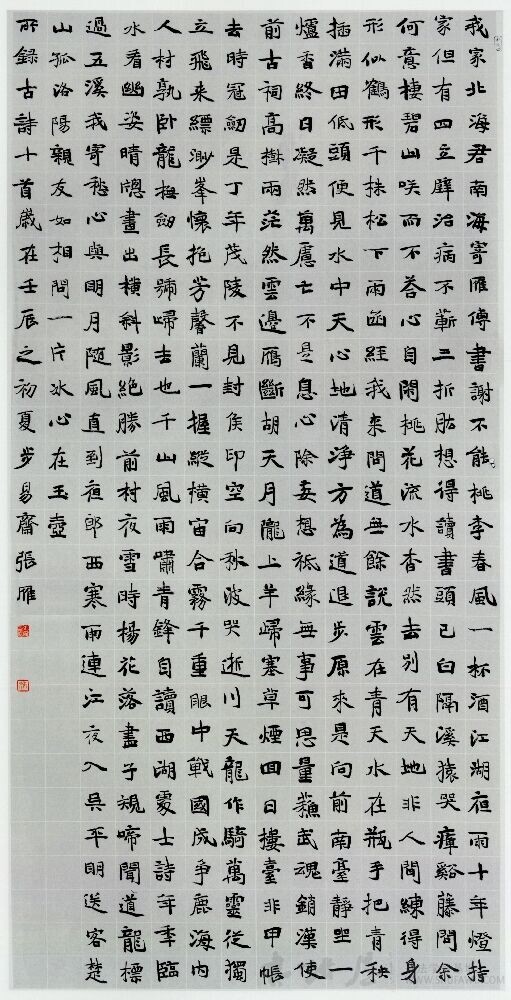 我家北海君南海寄雁傳書謝不能桃李春風一杯酒江湖夜雨十年燈持
家但有四立壁治病不蘄三折肱想得讀書頭已白隔溪猿哭瘴谿藤問余
何意棲碧山咲而不荅心自閑桃花流水杳然去別有天地非人間練得身
形似鶴形千株松下兩函經我來問道無餘說雲在青天水在瓶手把青秧
插滿田低頭便見水中天心地清淨方為道退步原來是向前南臺靜坐一
爐香終日凝然萬慮亡不是息心除妄想祗緣無事可思量蘇武魂銷漢使
前古祠高樹兩茫然雲邊雁斷胡天月隴上羊歸塞草煙回日樓臺非甲帳
去時冠劒是丁年茂陵不見封侯印空向秋波哭逝川天龍作騎萬靈從獨
立飛来縹渺峯懷抱芳馨蘭一握縱橫宙合霧千重眼中戰國成爭鹿海內
人材孰臥龍撫劒長號歸去也千山風雨嘯青鋒自讀西湖處士詩年年臨
水看幽姿晴窗畫出橫斜影絕勝前村夜雪時楊花落盡子規啼聞道龍標
過五溪我寄愁心與明月隨風直到夜郎西寒雨連江夜入吳平明送客楚
山孤洛陽親友如相問一片冰心在玉壺
所錄古詩十首歲在壬辰之初夏步易齋張雁